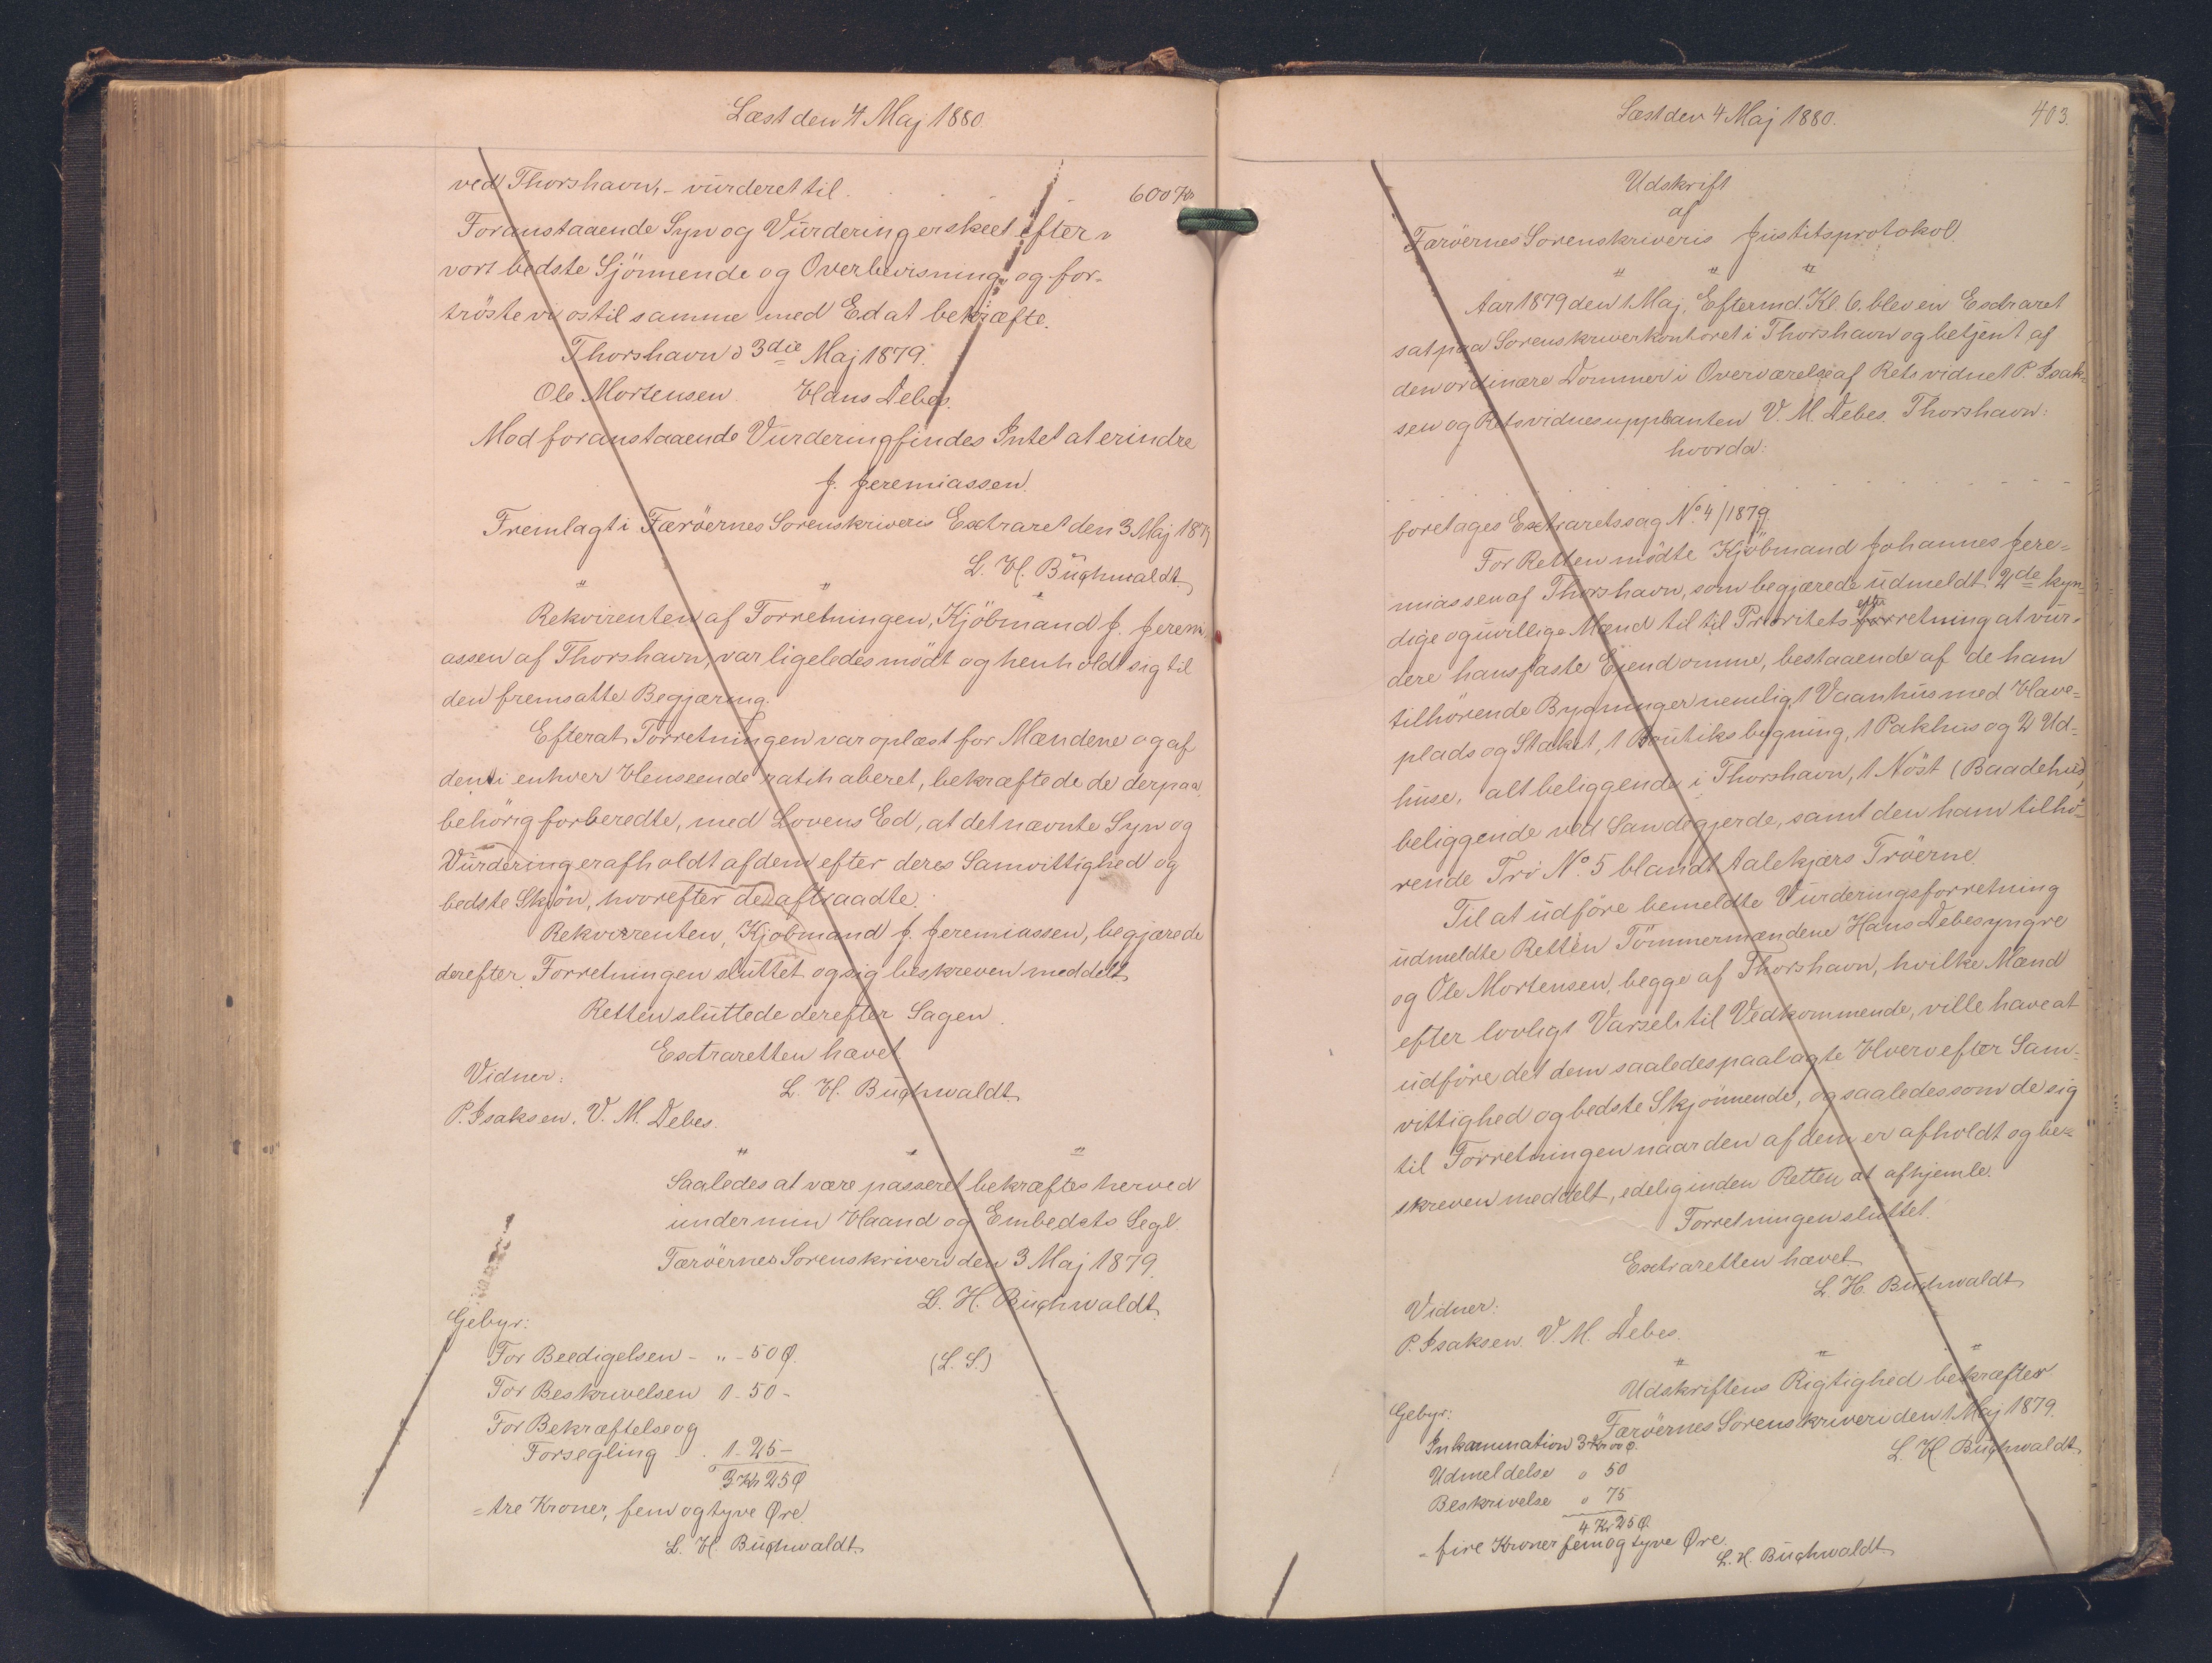 Læst den 4 Maj 1880.
ved Thorshavn, - vurderet til . . . 600 Kr
Foranstaaende Syn og Vurdering er skeet efter
vort bedste Sjönnende og Overbevisning, og for-
tröste vi os til samme med Ed at bekræfte.
Thorshavn d 3die Maj 1879.
Ole Mortensen. Hans Debes.
Mod foranstaaende Vurdering findes Intet at erindre
J. Jeremiassen.
Fremlagt i Færöernes Sorenskriveris Extraret den 3 Maj 1879
L. H. Buchwaldt.
" " "
Rekvirenten af Forretningen, Kjöbmand J. Jeremi-
assen af Thorshavn, var ligeledes mödt og henholdt sig til
den fremsatte Begjæring.
Efterat Forretningen var oplæst for Mændene og af
dem i enhver Henseende ratihaberet, bekræftede de derpaa,
behörig forberedte, med Lovens Ed, at det nævnte Syn og
Vurdering er afholdt af dem efter deres Samvittighed og
bedste Skjön, hvorefter de aftraadte.
Rekvirenten, Kjöbmand J. Jeremiassen, begjærede
derefter Forretningen sluttet og sig beskreven meddelt.
Retten sluttede derefter Sagen.
Extraretten hævet.
L. H. Buchwaldt.
Vidner:
P. Isaksen. V. M. Debes.
" " "
Saaledes at være passeret bekræftes herved
under min Haand og Embedets Segl.
Færöernes Sorenskriveri den 3 Maj 1879.
L. H. Buchwaldt.
(L. S.)
Gebyr:
For Beedigelsen - " - 50 Ø.
For Beskrivelsen 1 - 50 -
For Bekræftelse og
Forsegling - . 1 - 25 -
3 Kr 25 Ø
= tre Kroner, fem og tyve Øre.
L. H. Buchwaldt.
Læst den 4 Maj 1880.
403.
Udskrift
af
Færöernes Sorenskriveris Justitsprotokol.
" " "
Aar 1879 den 1 Maj, Eftermd. Kl. 6, blev en Extraret
sat paa Sorenskriverkontoret i Thorshavn og betjent af
den ordinære Dommer i Overværelse af Retsvidnet P. Isak-
sen og Retsvidnesuppleanten V. M. Debes. Thorshavn:
hvorda:
foretages Extraretssag No. 4/1879.
For Retten mödte Kjöbmand Johannes Jere-
miassen af Thorshavn, som begjærede udmeldt 2de kyn-
dige og uvillige Mænd til til Prioritets forretning at vur-
efter
dere hans faste Ejendomme, bestaaende af de ham
tilhörende Bygninger nemlig 1 Vaanhus med Have-
plads og Staket, 1 Boutiksbygning, 1 Pakhus og 2 Ud-
huse, alt beliggende i Thorshavn, 1 Nöst (Baadehus)
beliggende ved Sandegjerde, samt den ham tilhö-
rende Trö No. 5 blandt Aalekjærs Tröerne.
Til at udföre bemeldte Vurderingsforretning
udmeldte Retten Tömmermændene Hans Debes yngre
og Ole Mortensen, begge af Thorshavn, hvilke Mænd
efter lovligt Varsel til Vedkommende, ville have at
udföre det dem saaledes paalagte Hverv efter Sam-
vittighed og bedste Skjönnende, og saaledes som de sig
til Forretningen naar den af dem er afholdt og be-
skreven meddelt, edelig inden Retten at afhjemle.
Forretningen sluttet.
Extraretten hævet.
L. H. Buchwaldt.
Vidner:
P. Isaksen. V. M. Debes.
" " "
Udskriftens Rigtighed bekræftes
Færöernes Sorenskriveri den 1 Maj 1879.
L. H. Buchwaldt.
Gebyr:
Inkamination 3 Kr 00 Ø.
Udmeldelse " 50
Beskrivelse " 75
4 Kr 25 Ø.
= fire Kroner fem og tyve Øre.
L. H. Buchwaldt.